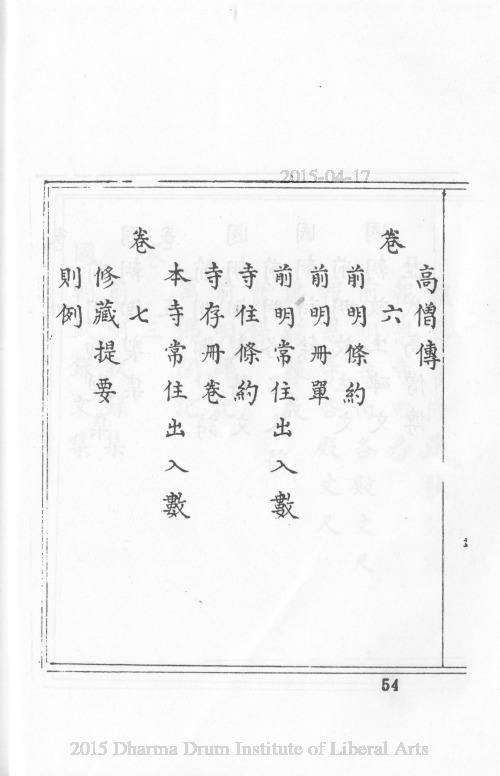 2015-04-17
高僧傳
卷六
前明條約
前明冊單
前明常住出入數
寺住條約
寺存冊卷
本寺常住出入數
卷七
修藏提要
則例
54
2015 Dharma Drum Institute of Liberal Arts